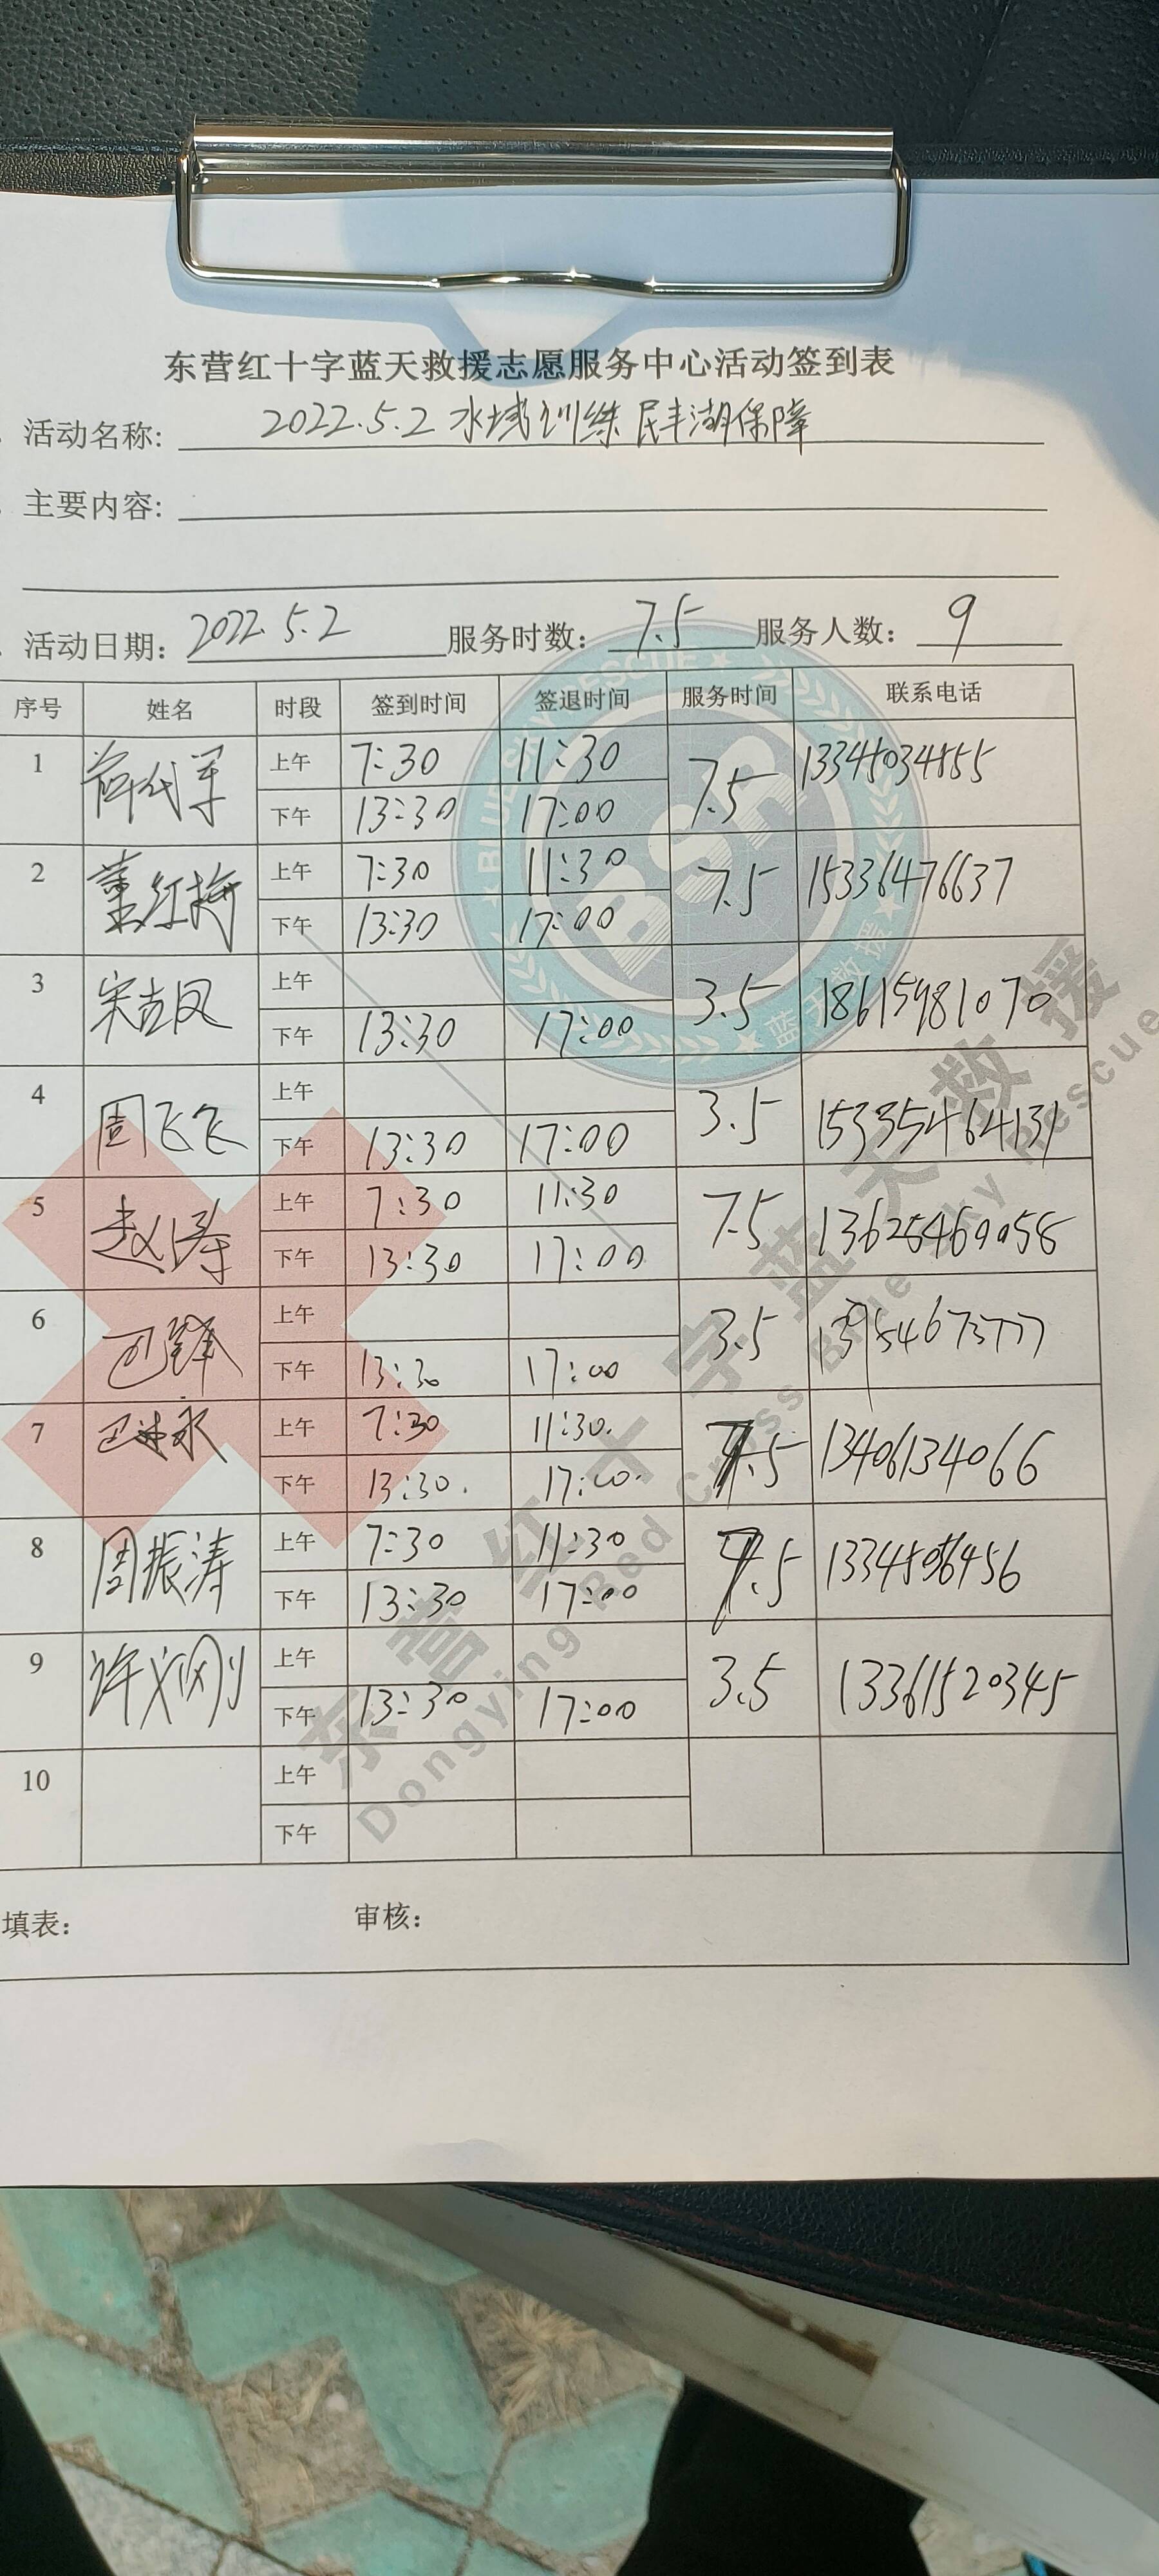 东营红十字蓝天救援志愿服务中心活动签到表
活动名称: 2022.5.2 水域训练 民丰湖保障
主要内容:
活动日期: 2022.5.2 服务时数: 7.5 服务人数: 9
序号 姓名 时段 签到时间 签退时间 服务时间 联系电话
1 上午 7:30 11:30 7.5
下午 13:30 17:00
2 董红梅 上午 7:30 11:30 7.5 15336476637
下午 13:30 17:00
3 宋吉凤 上午 3.5 18615981070
下午 13:30 17:00
4 周飞飞 上午 3.5 15335464131
下午 13:30 17:00
5 赵涛 上午 7:30 11:30 7.5 13625469058
下午 13:30 17:00
6 巴锋 上午 3.5
下午 13:30 17:00
7 上午 7:30 11:30. 7.5 13406134066
下午 13:30. 17:00.
8 周振涛 上午 7:30 11:30 7.5
下午 13:30 17:00
9 许义刚 上午 3.5 13361520345
下午 13:30 17:00
10 上午
下午
填表: 审核:
BLUE SKY RESCUE
BSR
蓝天救援
东营红十字蓝天救援
Dongying Red Cross Blue Sky Rescue